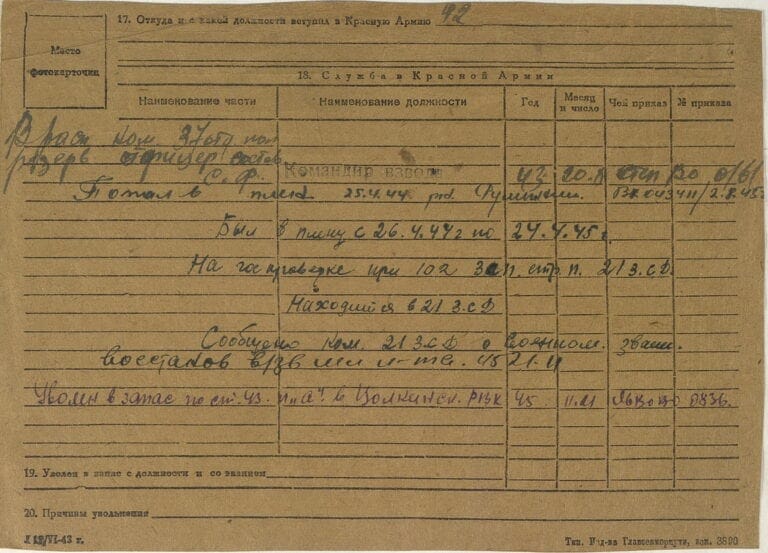 17. Откуда и с какой должности вступил в Красную Армию 42
Место
фотокарточки
18. Служба в Красной Армии
Наименование части Наименование должности Год Месяц и число Чей приказ № приказа
В расп ком 37 отд пол
резерв офицер состав
С.Ф. Командир взвода 43 20.8
Попал в плен 25.4.44 Румыния. 2.8.45
Был в плену с 26.4.44г по 24.4.45г.
На госпроверке при 102 Зап. стр. п. 213.сД
Находится в 213.сД
Сообщено ком. 213сД о военном. зван.
восстанов в/зв мл л-та. 45 21.11
Уволен в запас по ст. 43. п "а". в РВК 45 11.11 0836.
19. Уволен в запас с должности и со званием
20. Причины увольнения
Л 12/VI-43 г. Тип. Изд-ва Главсевморпути, зак. 3890